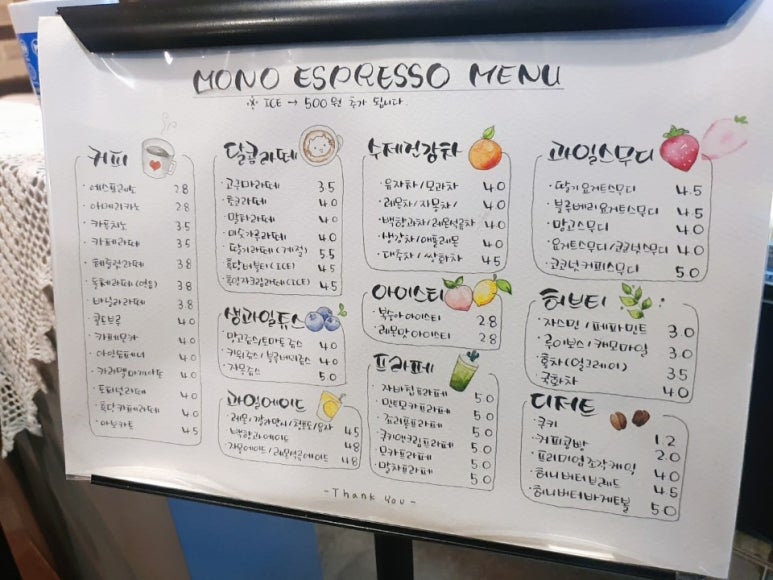 MONO ESPRESSO MENU
※ ICE → 500원 추가 됩니다.
커피
· 에스프레소 2.8
· 아메리카노 2.8
· 카푸치노 3.5
· 카페라떼 3.5
· 헤즐넛라떼 3.8
· 돌체라떼(연유) 3.8
· 바닐라라떼 3.8
· 콜드브루 4.0
· 카페모카 4.0
· 아인슈페너 4.0
· 카라멜마끼아또 4.0
· 토피넛라떼 4.0
· 흑당카페라떼 4.0
· 아포가토 4.5
달콤라떼
· 고구마라떼 3.5
· 초코라떼 4.0
· 말차라떼 4.0
· 미숫가루라떼 4.0
· 딸기라떼(계절) 5.5
· 흑당버블티(ICE) 4.5
· 흑임자크림라떼(ICE) 4.5
생과일쥬스
· 망고쥬스/토마토쥬스 4.0
· 키위쥬스/블루베리쥬스 4.0
· 자몽쥬스 5.0
과일에이드
· 레몬/깔라만시/청포도/유자 4.5
· 백향과에이드 4.8
· 자몽에이드/레몬석류에이드 4.8
수제건강차
· 유자차/모과차 4.0
· 레몬차/자몽차/ 4.0
· 백향과차/레몬석류차 4.0
· 생강차/애플레몬 4.0
· 대추차/쌍화차 4.5
아이스티
· 복숭아아이스티 2.8
· 레몬맛아이스티 2.8
프라페
· 자바칩프라페 5.0
· 민트모카프라페 5.0
· 쿠키앤크림프라페 5.0
· 모카프라페 5.0
· 말차프라페 5.0
과일스무디
· 딸기요거트스무디 4.5
· 블루베리요거트스무디 4.5
· 망고스무디 4.0
· 요거트스무디/코코넛스무디 4.0
· 코코넛커피스무디 5.0
허브티
· 자스민/페파민트 3.0
· 루이보스/캐모마일 3.0
· 홍차(얼그레이) 3.5
· 국화차 4.0
디저트
· 쿠키 1.2
· 커피콩빵 2.0
· 프리미엄조각케익 4.0
· 허니버터브레드 4.5
· 허니버터바게트볼 5.0
- Thank you -